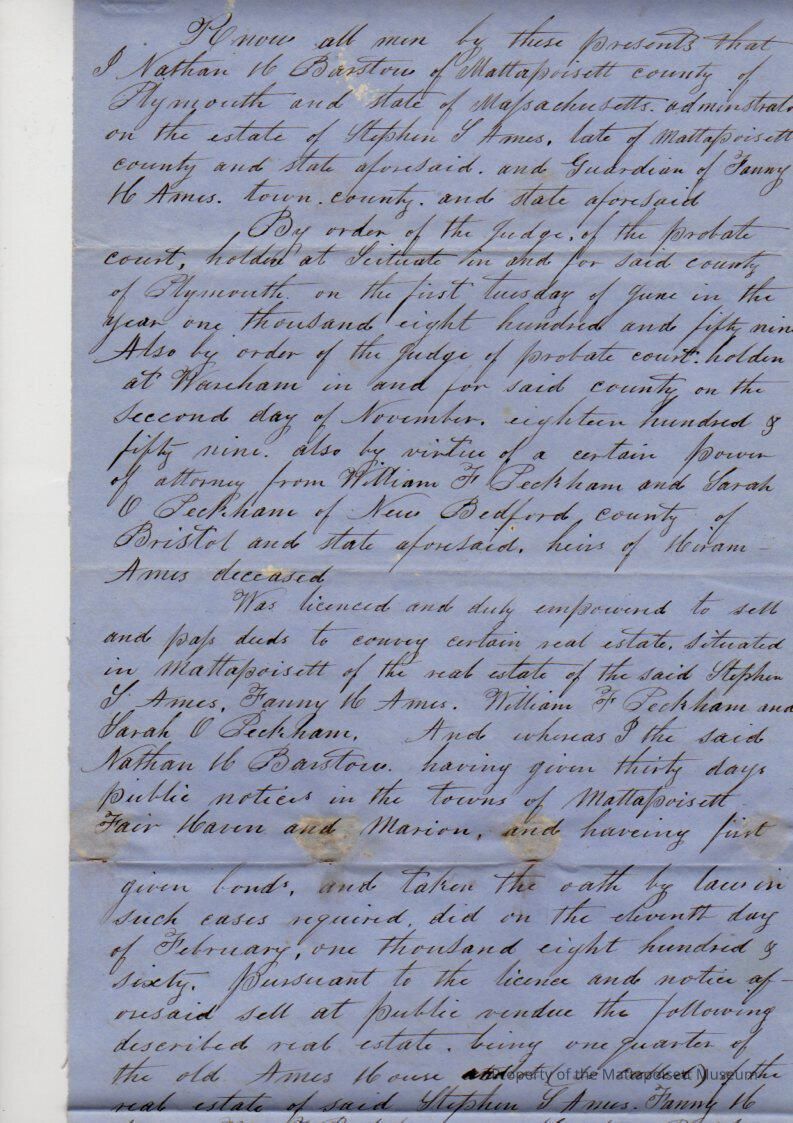 Know all men by these presents that
I Nathan H Barstow of Mattapoisett county of
Plymouth and state of Massachusetts. adminstrat
on the estate of Stephen S Ames, late of Mattapoisett
county and state aforesaid. and Guardian of Fanny
H Ames. town. county. and state aforesaid
By order of the Judge, of the probate
court, holden at Scituate in and for said county
of Plymouth on the first tuesday of June in the
year one thousand eight hundred and fifty nine
Also by order of the Judge of probate court. holden
at Wareham in and for said county on the
seccond day of November. eighteen hundred &
fifty nine. also by virtue of a certain power
of attorney from William F Peckham and Sarah
O Peckham of New Bedford county of
Bristol and state aforesaid, heirs of Hiram
Ames deceased
Was licenced and duly empowered to sell
and pass deeds to convey certain real estate. situated
in Mattapoisett of the real estate of the said Stephen
S Ames, Fanny H Ames. William F Peckham and
Sarah O Peckham. And whereas I the said
Nathan H Barstow. having given thirty days
public notices in the towns of Mattapoisett
Fair Haven and Marion, and haveing first
given bonds, and taken the oath by law in
such cases required, did on the eleventh day
of February, one thousand eight hundred &
sixty. Pursuant to the licence and notice af-
oresaid sell at public vendue the following
described real estate. being one quarter of
the old Ames House of the
Property of the Mattapoisett Museum
real estate of said Stephen S Ames. Fanny H